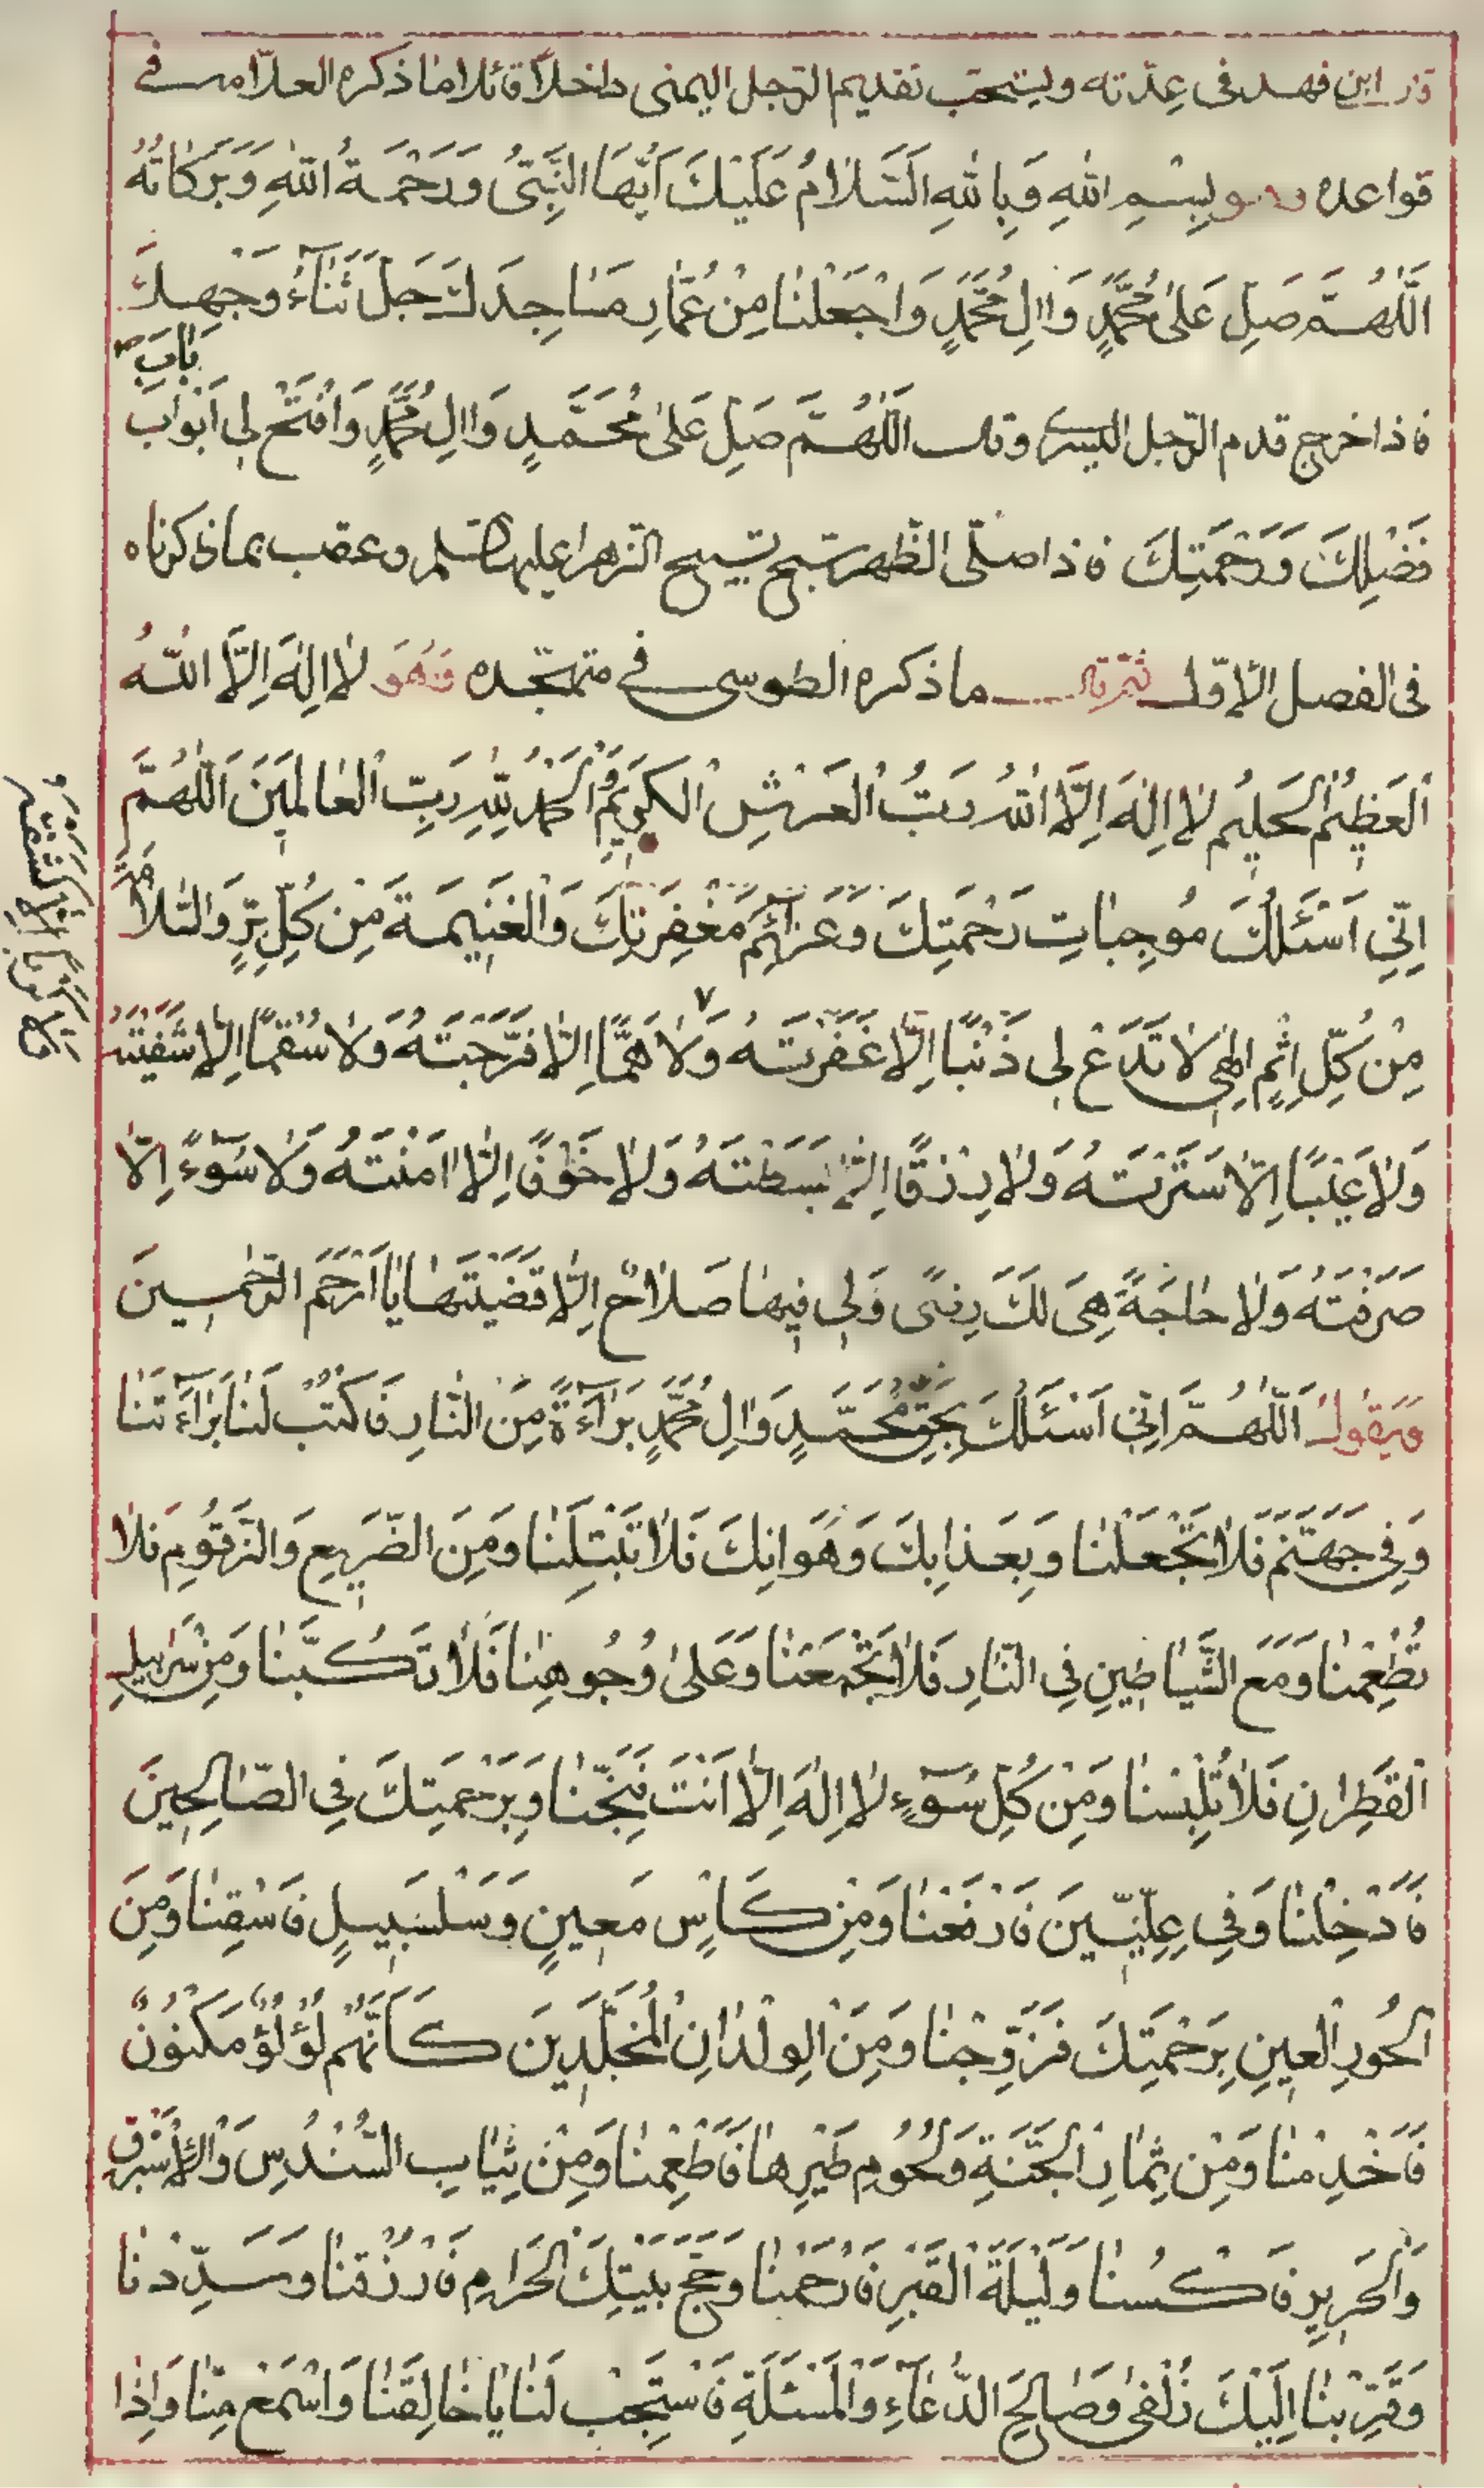 قال ابن فهد في عدّته ويستحب تقديم الرّجل اليمنى داخلاً قائلا ما ذكره العلّامه في
قواعده وهو بِسْمِ اللهِ وَبِاللهِ اَلسَّلامُ عَلَيْكَ اَيُّهَا النَّبِيُّ وَرَحْمَةُ اللهِ وَبَرَكاتُهُ
اَللّهُمَّ صَلِّ عَلىٰ مُحَمَّدٍ وَاالِ مُحَمَّدٍ وَاجْعَلْنا مِنْ عُمّارِ مَساجِدِكَ جَلَّ ثَناۤءُ وَجْهِكَ
باب
فاذا خرج قدم الرّجل اليسرى وقال اَللّهُمَّ صَلِّ عَلىٰ مُحَمَّدٍ وَاالِ مُحَمَّدٍ وَافْتَحْ لي اَبْوابَ
فَضْلِكَ وَرَحْمَتِكَ فاذا صلّى الظّهر سبّح تسبيح الزهرا عليها السلم وعقب بما ذكرناه
في الفصل الاوّل ثم قل ما ذكره الطوسي في متهجّده وَهُوَ لا اِلهَ اِلَّا اللهُ
اَلعَظِيْمُ الْحَلِيْم لا اِلهَ اِلَّا اللهُ رَبُّ الْعَرْشِ الْكَرِيْمِ وَالْحَمْدُ لِلّهِ رَبِّ الْعالَمِيْنَ اَللّهُمَّ
اِنِّي اَسْئَلُكَ مُوجِباتِ رَحْمَتِكَ وَعَزاۤئِمَ مَغْفِرَتِكَ وَالْغَنِيْمَةَ مِنْ كُلِّ بِرٍّ وَالسَّلامَةَ
مِنْ كُلِّ اِثْمٍ اِلهي لا تَدَعْ لي ذَنْبًا اِلّا غَفَرْتَهُ وَلا هَمًّا اِلّا فَرَّجْتَهُ وَلا سُقْمًا اِلّا شَفَيْتَهُ
وَلا عَيْبًا اِلّا سَتَرْتَهُ وَلا رِزْقًا اِلّا بَسَطْتَهُ وَلا خَوْفًا اِلّا اامَنْتَهُ وَلا سُوۤءً اِلّا
صَرَفْتَهُ وَلا حاجَةً هِيَ لَكَ رِضًى وَلِي فِيها صَلاحٌ اِلّا قَضَيْتَها يا اَرْحَمَ الرّٰحِمِينَ
وَيقول اَللّهُمَّ اِنّي اَسْئَلُكَ بِحَقِّ مُحَمَّدٍ وَاالِ مُحَمَّدٍ بَرَاۤءَةً مِنَ النّارِ فَاكْتُبْ لَنا بَرَاۤءَتَنا
وَفِي جَهَنَّمَ فَلا تَجْعَلْنا وَبِعَذابِكَ وَهَوانِكَ فَلا تَبْتِلَنا وَمِنَ الضَّرِيعِ وَالزَّقُّوْمِ فَلا
تُطْعِمْنا وَمَعَ الشَّياطِينِ فِي النّارِ فَلا تَجْمَعْنا وَعَلىٰ وُجُوهِنا فَلا تَكُبَّنا وَمِنْ سَرابِيلِ
الْقَطِرانِ فَلا تُلْبِسْنا وَمِنْ كُلِّ سُوۤءٍ لا اِلهَ اِلّا اَنْتَ فَنَجِّنا وَبِرَحْمَتِكَ فِي الصّالِحِينَ
فَاَدْخِلْنا وَفِي عِلِّيِّينَ فَارْفَعْنا وَمِنْ كَاْسٍ مَعِينٍ وَسَلْسَبِيلٍ فَاسْقِنا وَمِنَ
الْحُورِ الْعِينِ بِرَحْمَتِكَ فَزَوِّجْنا وَمِنَ الْوِلْدانِ الْمُخَلَّدِينَ كَاَنَّهُمْ لُؤْلُؤٌ مَكْنُونٌ
فَاَخْدِمْنا وَمِنْ ثِمارِ الْجَنَّةِ وَلُحُوْمِ طَيْرِها فَاَطْعِمْنا وَمِنْ ثِيابِ السُّنْدُسِ وَالْاِسْتَبْرَقِ
وَالْحَرِيرِ فَاكْسُنا وَلَيْلَةَ الْقَدْرِ فَارْحَمْنا وَحَجَّ بَيْتِكَ الْحَرامِ فَارْزُقْنا وَسَدِّدْنا
وَقَرِّبْنا اِلَيْكَ زُلْفىٰ وَصالِحَ الدُّعاۤءِ وَالْمَسْئَلَةِ فَاسْتَجِبْ لَنا يا خالِقَنا وَاسْمَعْ مِنّا وَاِذا